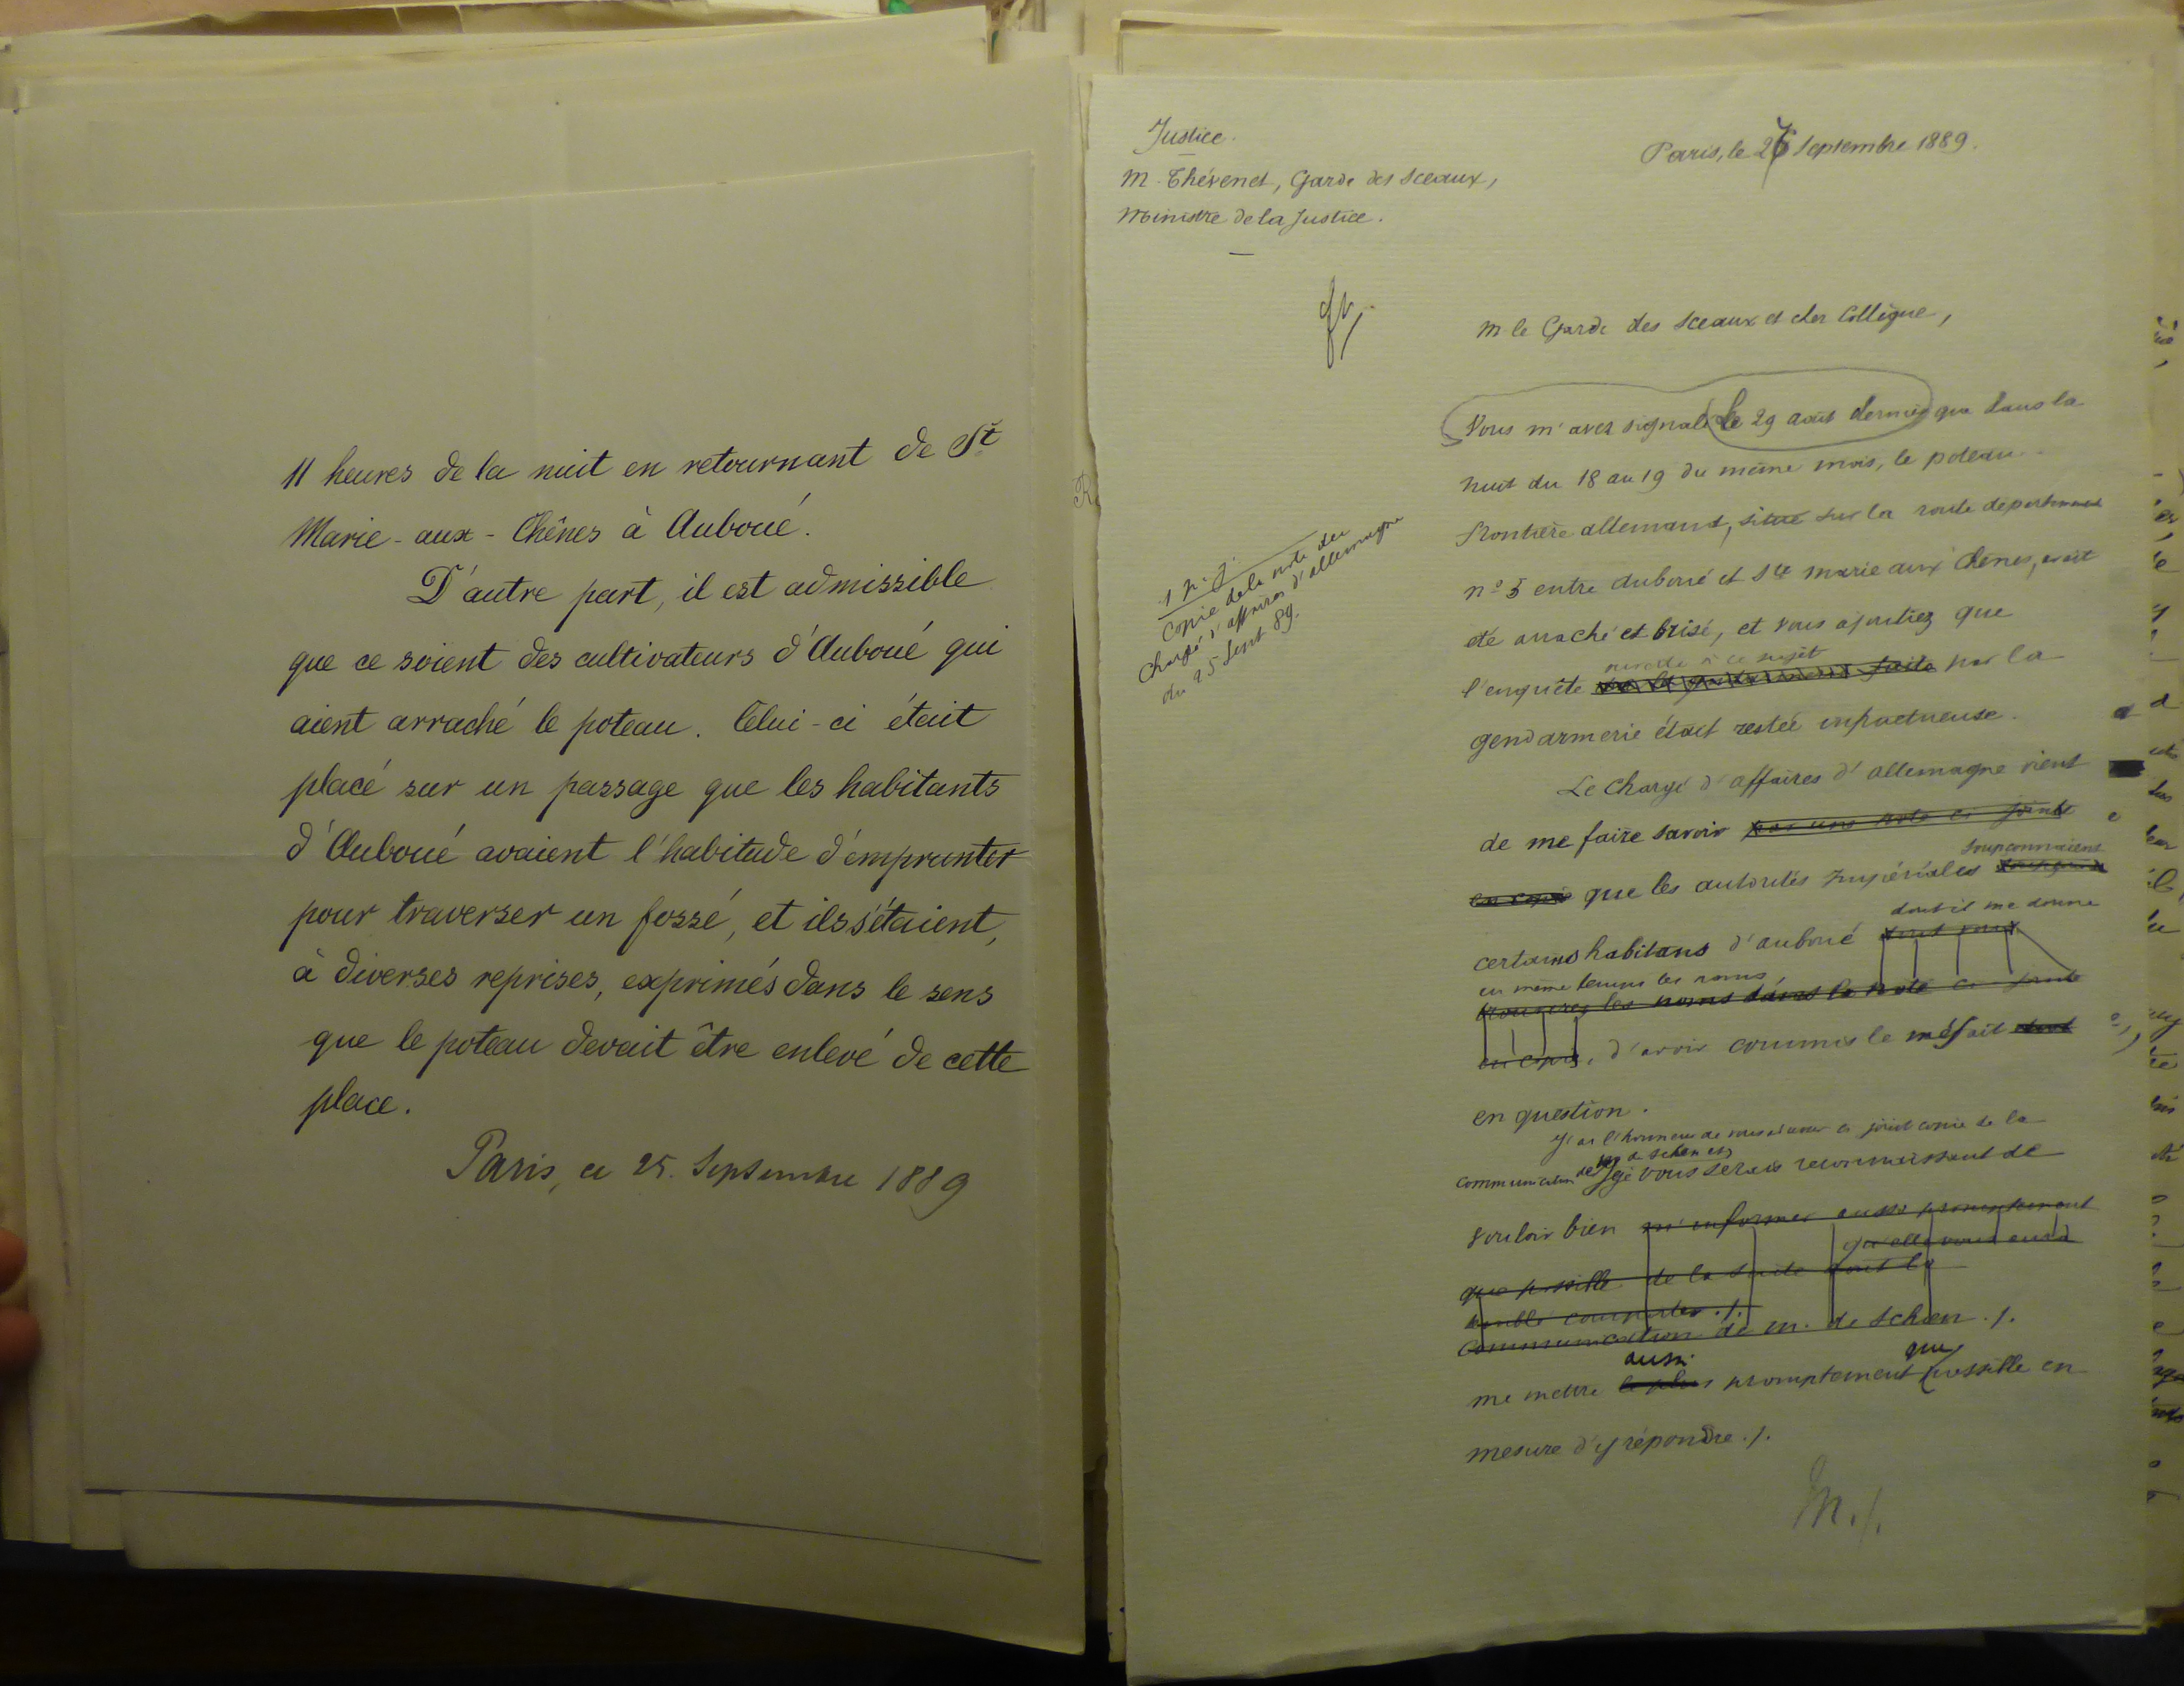 11 heures de la nuit en retournant de Ste
Marie-aux-Chênes à Auboué.
D'autre part, il est admissible
que ce soient des cultivateurs d'Auboué qui
aient arraché le poteau. Celui-ci était
placé sur un passage que les habitants
d'Auboué avaient l'habitude d'emprunter
pour traverser un fossé, et ils s'étaient,
à diverses reprises, exprimés dans le sens
que le poteau devait être enlevé de cette
place.
Paris, ce 25. Septembre 1889
Justice.
M. Thévenet, Garde des Sceaux,
Ministre de la Justice.
Paris, le 27 Septembre 1889.
M. le Garde des Sceaux et cher Collègue,
Vous m'avez signalé le 29 août dernier que dans la
nuit du 18 au 19 du même mois, le poteau
frontière allemand, situé sur la route departementale
n° 5 entre Auboué et Ste Marie aux Chênes, avait
été arraché et brisé, et vous ajoutiez que
à ce sujet
l'enquête faite par la
gendarmerie était restée infructueuse.
1 p. j.
Copie de la note du
chargé d'affaires d'allemagne
du 25 Sept 89.
Le Chargé d'affaires d'allemagne vient
de me faire savoir par une note ci jointe
soupçonnaient
en copie que les autorités impériales
dont il me donne
certains habitans d'auboué dont vous
en même temps les noms,
trouverez les noms dans la note ci jointe
en copie, d'avoir commis le méfait dont
en question.
J'ai l'honneur de vous adresser ci joint copie de la
communication de M. de Schoen et je vous serais reconnaissant de
vouloir bien m'informer aussi promptement
qu'elle vous aura
que possible de la suite dont la
semblé comporter ./.
communication de M. de Schoen ./.
aussi que
me mettre le plus promptement possible en
mesure d'y répondre ./.
M. ./.